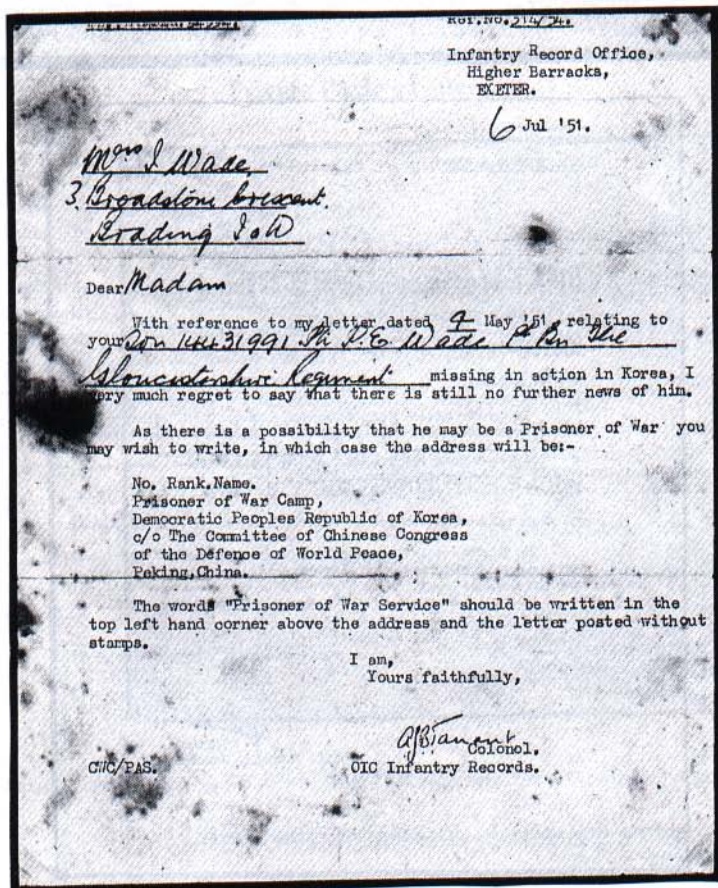 Ref.No.
Infantry Record Office,
Higher Barracks,
EXETER.
6 Jul '51.
Mrs I Wade
3. Broadstone Crescent.
Brading I o W
Dear Madam
With reference to my letter dated May '51, relating to
your Son 14431991 P.E. Wade 1st Bn The
Gloucestershire Regiment missing in action in Korea, I
very much regret to say that there is still no further news of him.
As there is a possibility that he may be a Prisoner of War you
may wish to write, in which case the address will be:-
No. Rank.Name.
Prisoner of War Camp,
Democratic Peoples Republic of Korea,
c/o The Committee of Chinese Congress
of the Defence of World Peace,
Peking,China.
The words "Prisoner of War Service" should be written in the
top left hand corner above the address and the letter posted without
stamps.
I am,
Yours faithfully,
Colonel.
CWC/PAS. OIC Infantry Records.